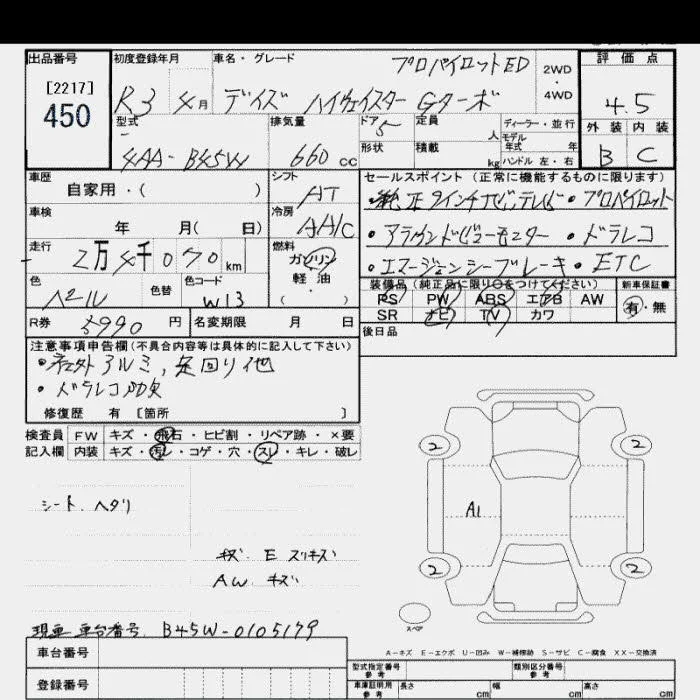 出品番号 初度登録年月 車名・グレード プロパイロットED 2WD・4WD 評価点
[2217]
450
R3 4月 デイズ ハイウェイスター Gターボ 4.5
型式 排気量 ドア 5 定員 人 ディーラー・並行 外装 内装
4AA-B45W 660 cc 形状 積載 kg モデル年式 年 ハンドル 左・右 B C
車歴 自家用・( ) シフト AT セールスポイント (正常に機能するものに限ります)
・純正9インチナビ,テレビ ・プロパイロット
車検 年 月( 日) 冷房 AA/C
・アラウンドビューモニター ・ドラレコ
走行 2万4千070 km 燃料 ガソリン 軽油 ( ・ )
・エマージェンシーブレーキ ・ETC
色 色替 色コード W13
装備品 (純正品に限り○をつけてください) 新車保証書
PS PW ABS エアB AW 有・無
SR ナビ TV カワ
R券 5990 円 名変期限 月 日
後日品
注意事項申告欄(不具合内容等は具体的に記入して下さい)
・社外アルミ,足回り他
・ドラレコ
修復歴 有 [箇所 ]
検査員 FW キズ・飛石・ヒビ割・リペア跡・×要
記入欄 内装 キズ・汚レ・コゲ・穴・スレ・キレ・破レ
2 2
シート.ヘタリ A1
キズ E スリキズ
AW キズ
2 2
スペア
現車 車台番号. B45W-0105179
A-キズ E-エクボ U-凹み W-補修跡 S-サビ C-腐食 XX-交換済
車台番号
型式指定番号 参考 類別区分番号 参考
登録番号
車庫証明用 参考 長さ cm 幅 cm 高さ cm